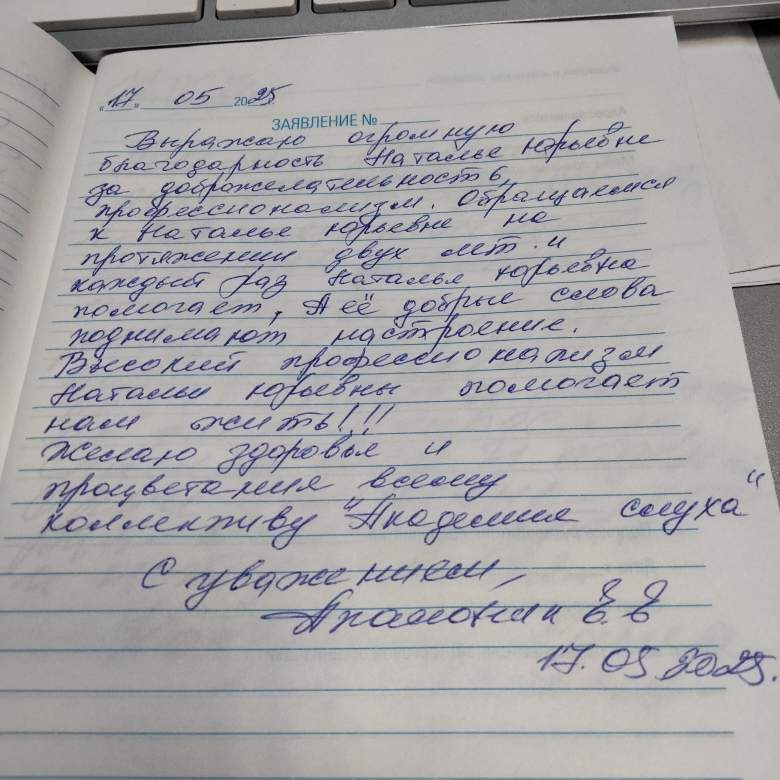 "17" 05 2025
ЗАЯВЛЕНИЕ №
Выражаю огромную
благодарность Наталье Юрьевне
за доброжелательность,
профессионализм. Обращаемся
к Наталье Юрьевне на
протяжении двух лет и
каждый раз Наталья Юрьевна
помогает, А её добрые слова
поднимают настроение.
Высокий профессионализм
Натальи Юрьевны помогает
нам жить!!!
Желаю здоровья и
процветания всему
коллективу "Академия слуха"
С уважением,
Е. Е
17.05 2025.